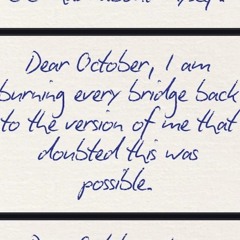 Dear October, I am
burning every bridge back
to the version of me that
doubted this was
possible.